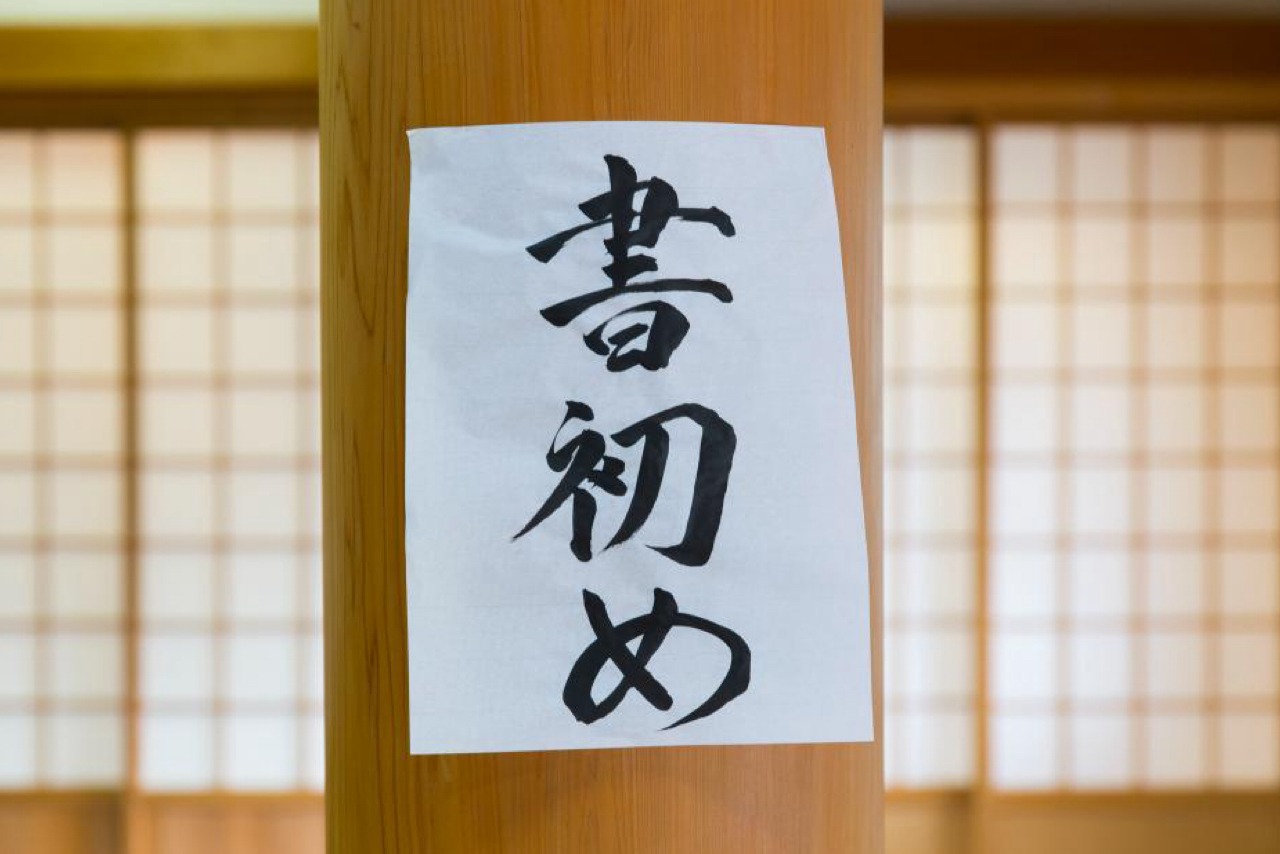 書初め